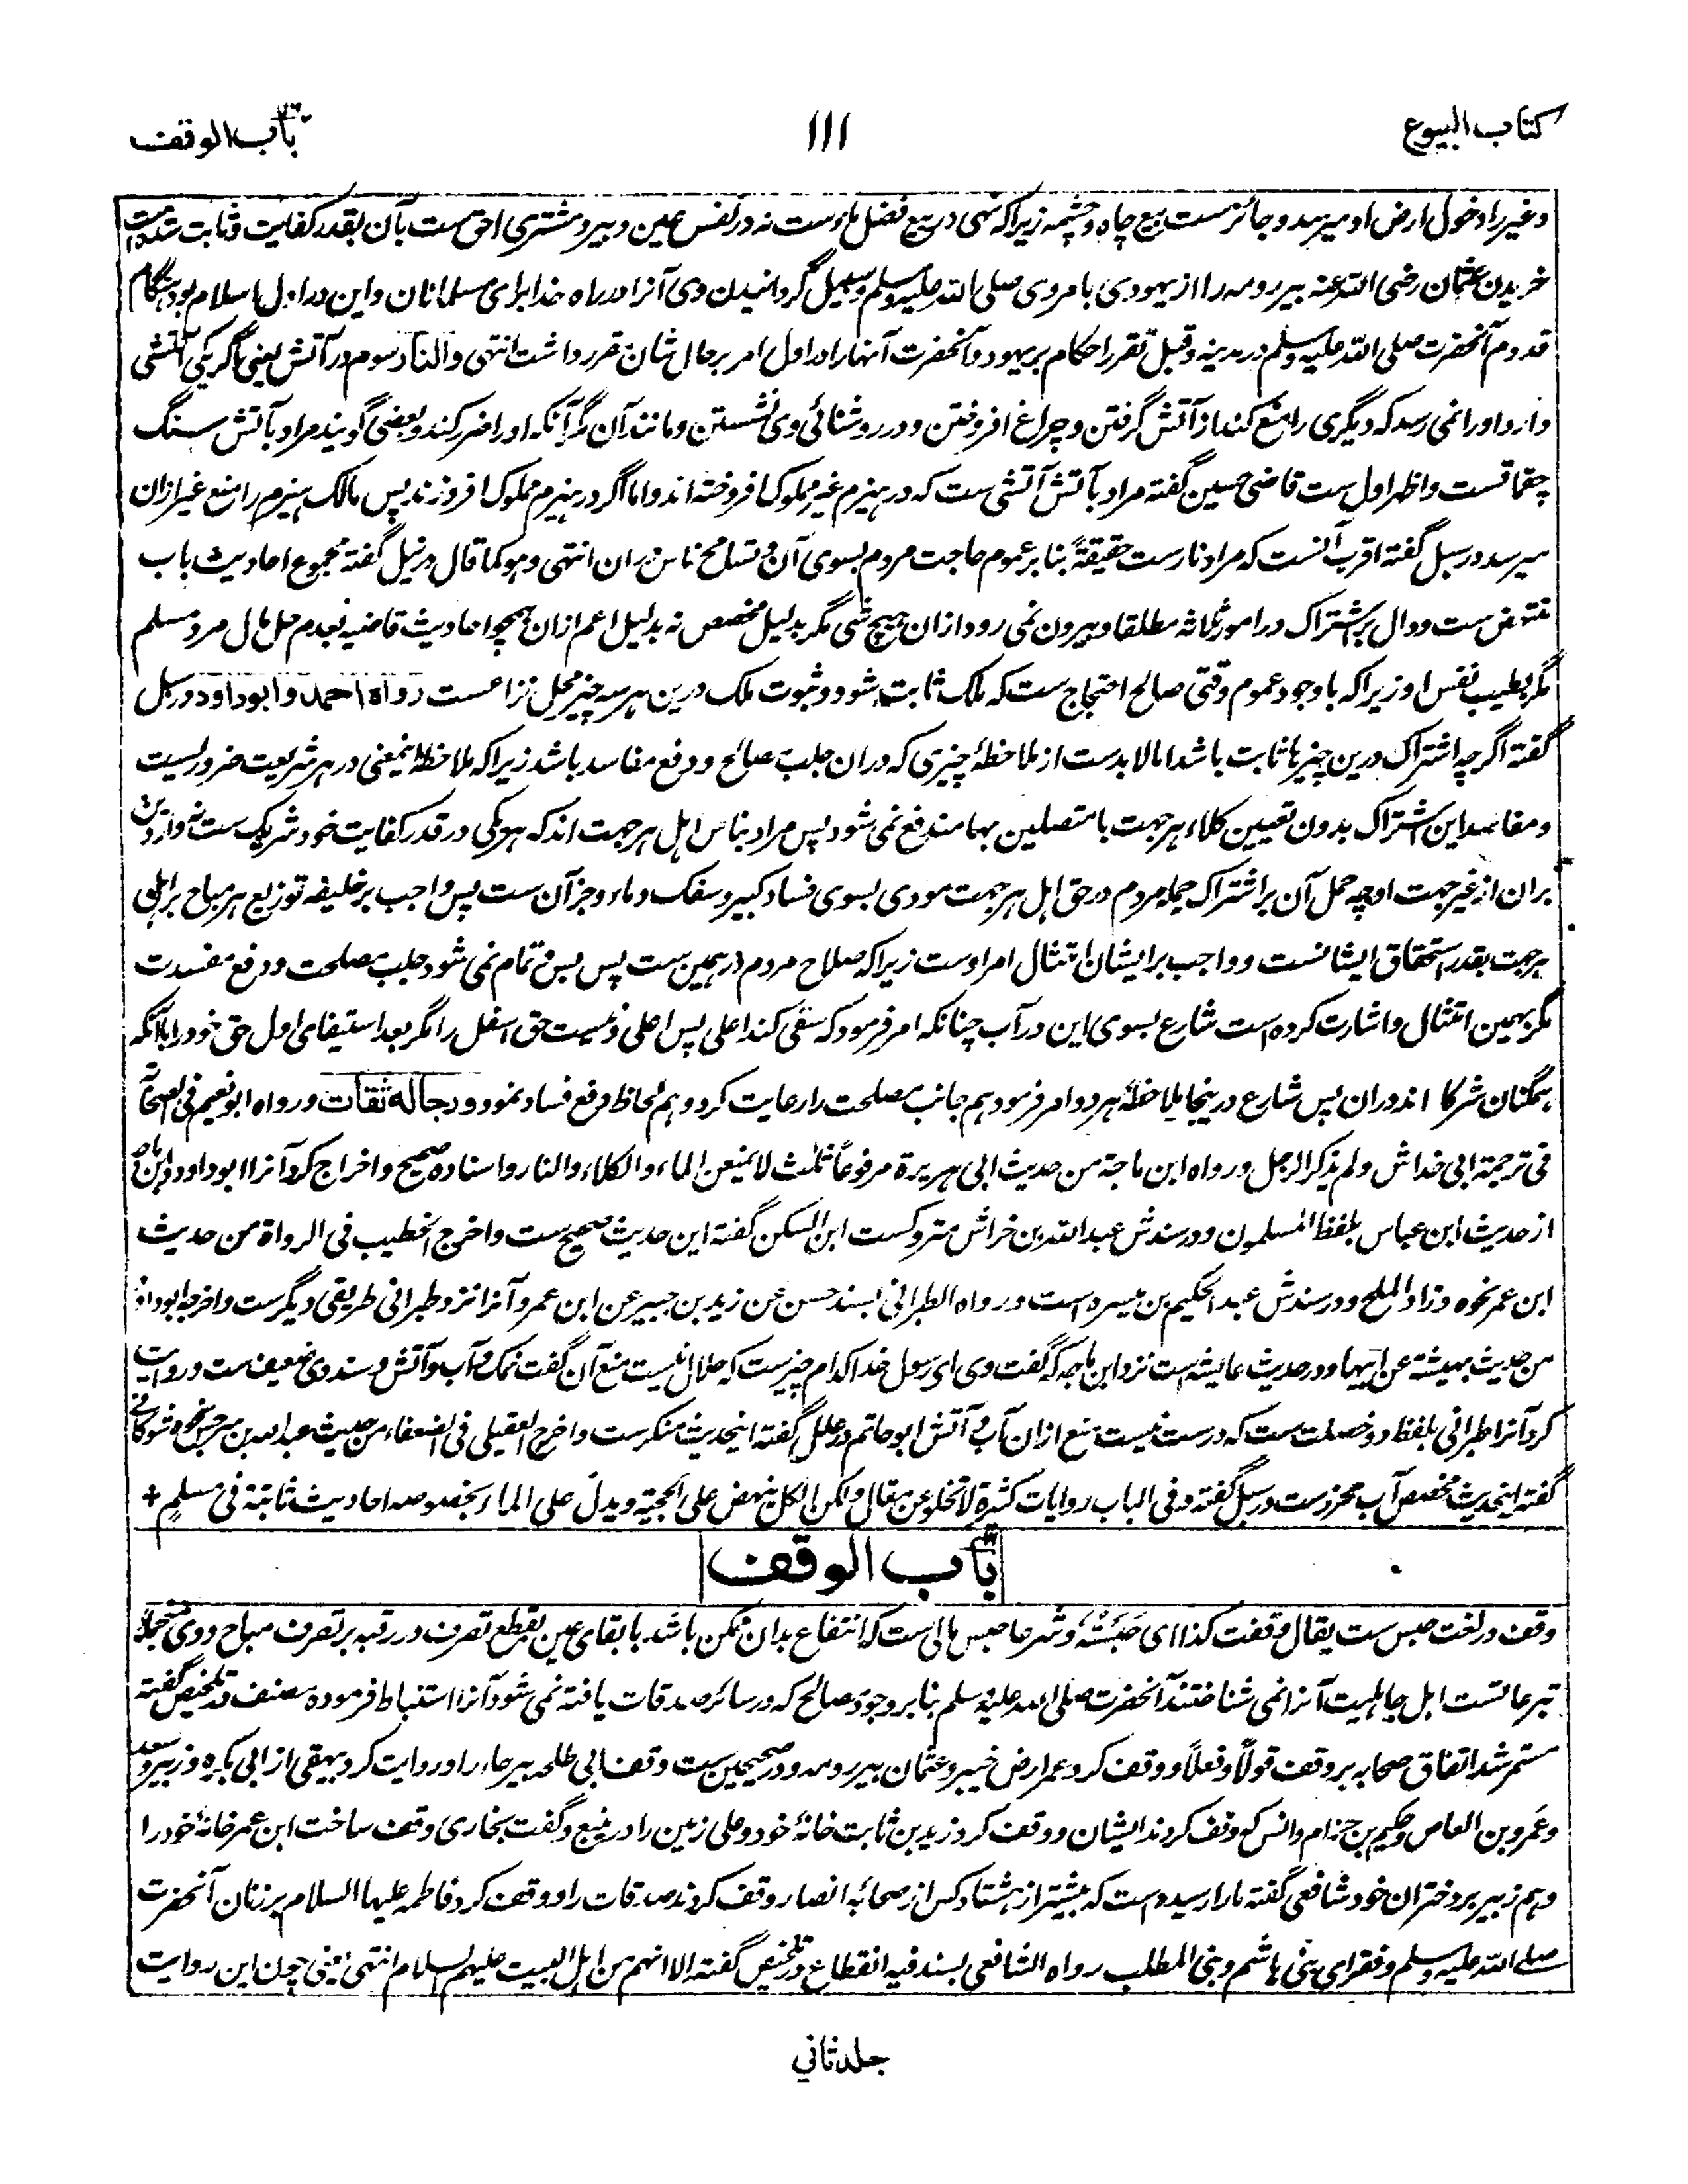 کتاب البیوع
۱۱۱
باب الوقف
وغیر را دخول ارض او میرسد و جائزست بیع چاه و چشمه زیراکه نهی در بیع فضل ماءست نه در نفس عین و بیر و مشتری احق ست بآن بقدر کفایت و ثابت شده است
خریدن عثمان رضی الله عنه بیر رومه را از یهودی بامر وی صلی الله علیه وسلم و سبیل گردانیدن وی آنرا در راه خدا برای مسلمانان و این در اول اسلام بود هنگام
قدوم آنحضرت صلی الله علیه وسلم در مدینه و قبل تقرر احکام بر یهود و آنحضرت آنها را در اول امر بر حال شان مقرر داشت انتهی والنار سوم در آتش یعنی اگر یکی آتشی
دارد او را نمی رسد که دیگری را منع کند از آتش گرفتن و چراغ افروختن و در روشنائی وی نشستن و مانند آن مگر آنکه او را ضرر کند و بعضی گویند مراد بآتش سنگ
چقماقست و اظهر اول ست قاضی حسین گفته مراد بآتش آتشی ست که در هیزم غیر مملوک افروخته اند و اما اگر در هیزم مملوک افروزند پس مالک هیزم را منع غیر ازان
میرسد در سبل گفته اقرب آنست که مراد نارست حقیقةً بنا بر عموم حاجت مردم بسوی آن و تسامح ناس دران انتهی و هو کما قال در نیل گفته مجموع احادیث باب
منتهض ست و دال بر اشتراک در امور ثلاثه مطلقا و بیرون نمی رود ازان هیچ شی مگر بدلیل مخصص نه بدلیل اعم ازان همچو احادیث قاضیه بعدم حل مال مرد مسلم
مگر بطیب نفس او زیراکه باوجود عموم وقتی صالح احتجاج ست که ملک ثابت شود و ثبوت ملک درین هر سه چیز محل نزاعست رواه احمد و ابوداود در سبل
گفته اگرچه اشتراک درین چیزها ثابت باشد اما لابدست از ملاحظهٔ چیزی که دران جلب مصالح و دفع مفاسد باشد زیراکه ملاحظهٔ اینمعنی در هر شریعت ضروریست
و مفاسد این اشتراک بدون تعیین کلاء هر جهت بامتصلین بها مندفع نمی شود پس مراد بناس اهل هر جهت اند که هر یکی در قدر کفایت خود شریک ست نه واردین
بران از غیر جهت او چه حمل آن بر اشتراک جمله مردم در حق اهل هر جهت مودی بسوی فساد کبیر و سفک دماء و جز آن ست پس واجب بر خلیفه توزیع هر مباح بر اهل
هر جهت بقدر استحقاق ایشانست و واجب بر ایشان امتثال امر اوست زیراکه صلاح مردم در همین ست پس بس و تمام نمی شود جلب مصلحت و دفع مفسدت
مگر بهمین امتثال و اشارت کرده است شارع بسوی این در آب چنانکه امر فرمود که سقی کند اعلی پس اعلی و نیست حق اسفل را مگر بعد استیفای اول حق خود را با آنکه
همگنان شرکا اند دران پس شارع درینجا ملاحظهٔ هر دو امر فرمود هم جانب مصلحت را رعایت کرد و هم لحاظ دفع فساد نمود ورجاله ثقات ورواه ابونعیم فی الصحابة
فی ترجمة ابی خداش ولم یذکر الرجل ورواه ابن ماجة من حدیث ابی هریرة مرفوعاً ثلث لا یمنعن الماء والکلاء والنار واسناده صحیح و اخراج کرد آنرا ابوداود و ابن ماجه
از حدیث ابن عباس بلفظ المسلمون و در سندش عبدالله بن خراش متروکست ابن السکن گفته این حدیث صحیح ست واخرج الخطیب فی الرواة من حدیث
ابن عمر نحوه وزاد الملح و در سندش عبدالحکیم بن میسره است ورواه الطبرانی بسند حسن عن زید بن جبیر عن ابن عمر و آنرا نزد طبرانی طریقی دیگرست واخرجه ابوداود
من حدیث بهیسة عن ابیها و در حدیث عایشه ست نزد ابن ماجه که گفت وی ای رسول خدا کدام چیزست که حلال نیست منع آن گفت نمک و آب و آتش و سند وی ضعیف ست و روایت
کرد آنرا طبرانی بلفظ دو خصلت ست که درست نیست منع ازان آب و آتش ابوحاتم در علل گفته اینحدیث منکرست واخرج العقیلی فی الضعفاء من حدیث عبدالله بن سرجس نحوه شوکانی
گفته اینحدیث مخصص آب محرزست در سبل گفته وفی الباب روایات کثیرة لا تخلو عن مقال ولکن الکل ینهض علی الحجیة ویدل علی الماء بخصوصه احادیث ثابتة فی مسلم +
باب الوقف
وقف در لغت حبس ست یقال وقفت کذا ای حَبَسْتُهٗ و شرعا حبس مالی ست که انتفاع بدان ممکن باشد با بقای عین بقطع تصرف در رقبه بر تصرف مباح و وی منجمله
تبرعاتست اهل جاهلیت آنرا نمی شناختند آنحضرت صلی الله علیه وسلم بنا بر وجود مصالح که در سائر صدقات یافته نمی شود آنرا استنباط فرموده مصنف در تلخیص گفته
مستمر شد اتفاق صحابه بر وقف قولاً و فعلاً و وقف کرد عمر ارض خیبر و عثمان بیر رومه و در صحیحین ست وقف ابی طلحه بیرحاء را و روایت کرد بیهقی از ابی بکر و زبیر و سعد
و عمرو بن العاص و حکیم بن حزام و انس که وقف کردند ایشان و وقف کرد زید بن ثابت خانهٔ خود و علی زمین را در ینبع و گفت بخاری وقف ساخت ابن عمر خانهٔ خود را
و هم زبیر بر دختران خود شافعی گفته ما را رسیده است که بیشتر از هشتاد کس از صحابهٔ انصار وقف کردند صدقات را و وقف کرد فاطمه علیها السلام بر زنان آنحضرت
صلی الله علیه وسلم و فقرای بنی هاشم و بنی المطلب رواه الشافعی بسند فیه انقطاع در تلخیص گفته الا انهم من اهل البیت علیهم السلام انتهی یعنی چون این روایت
جلد ثانی